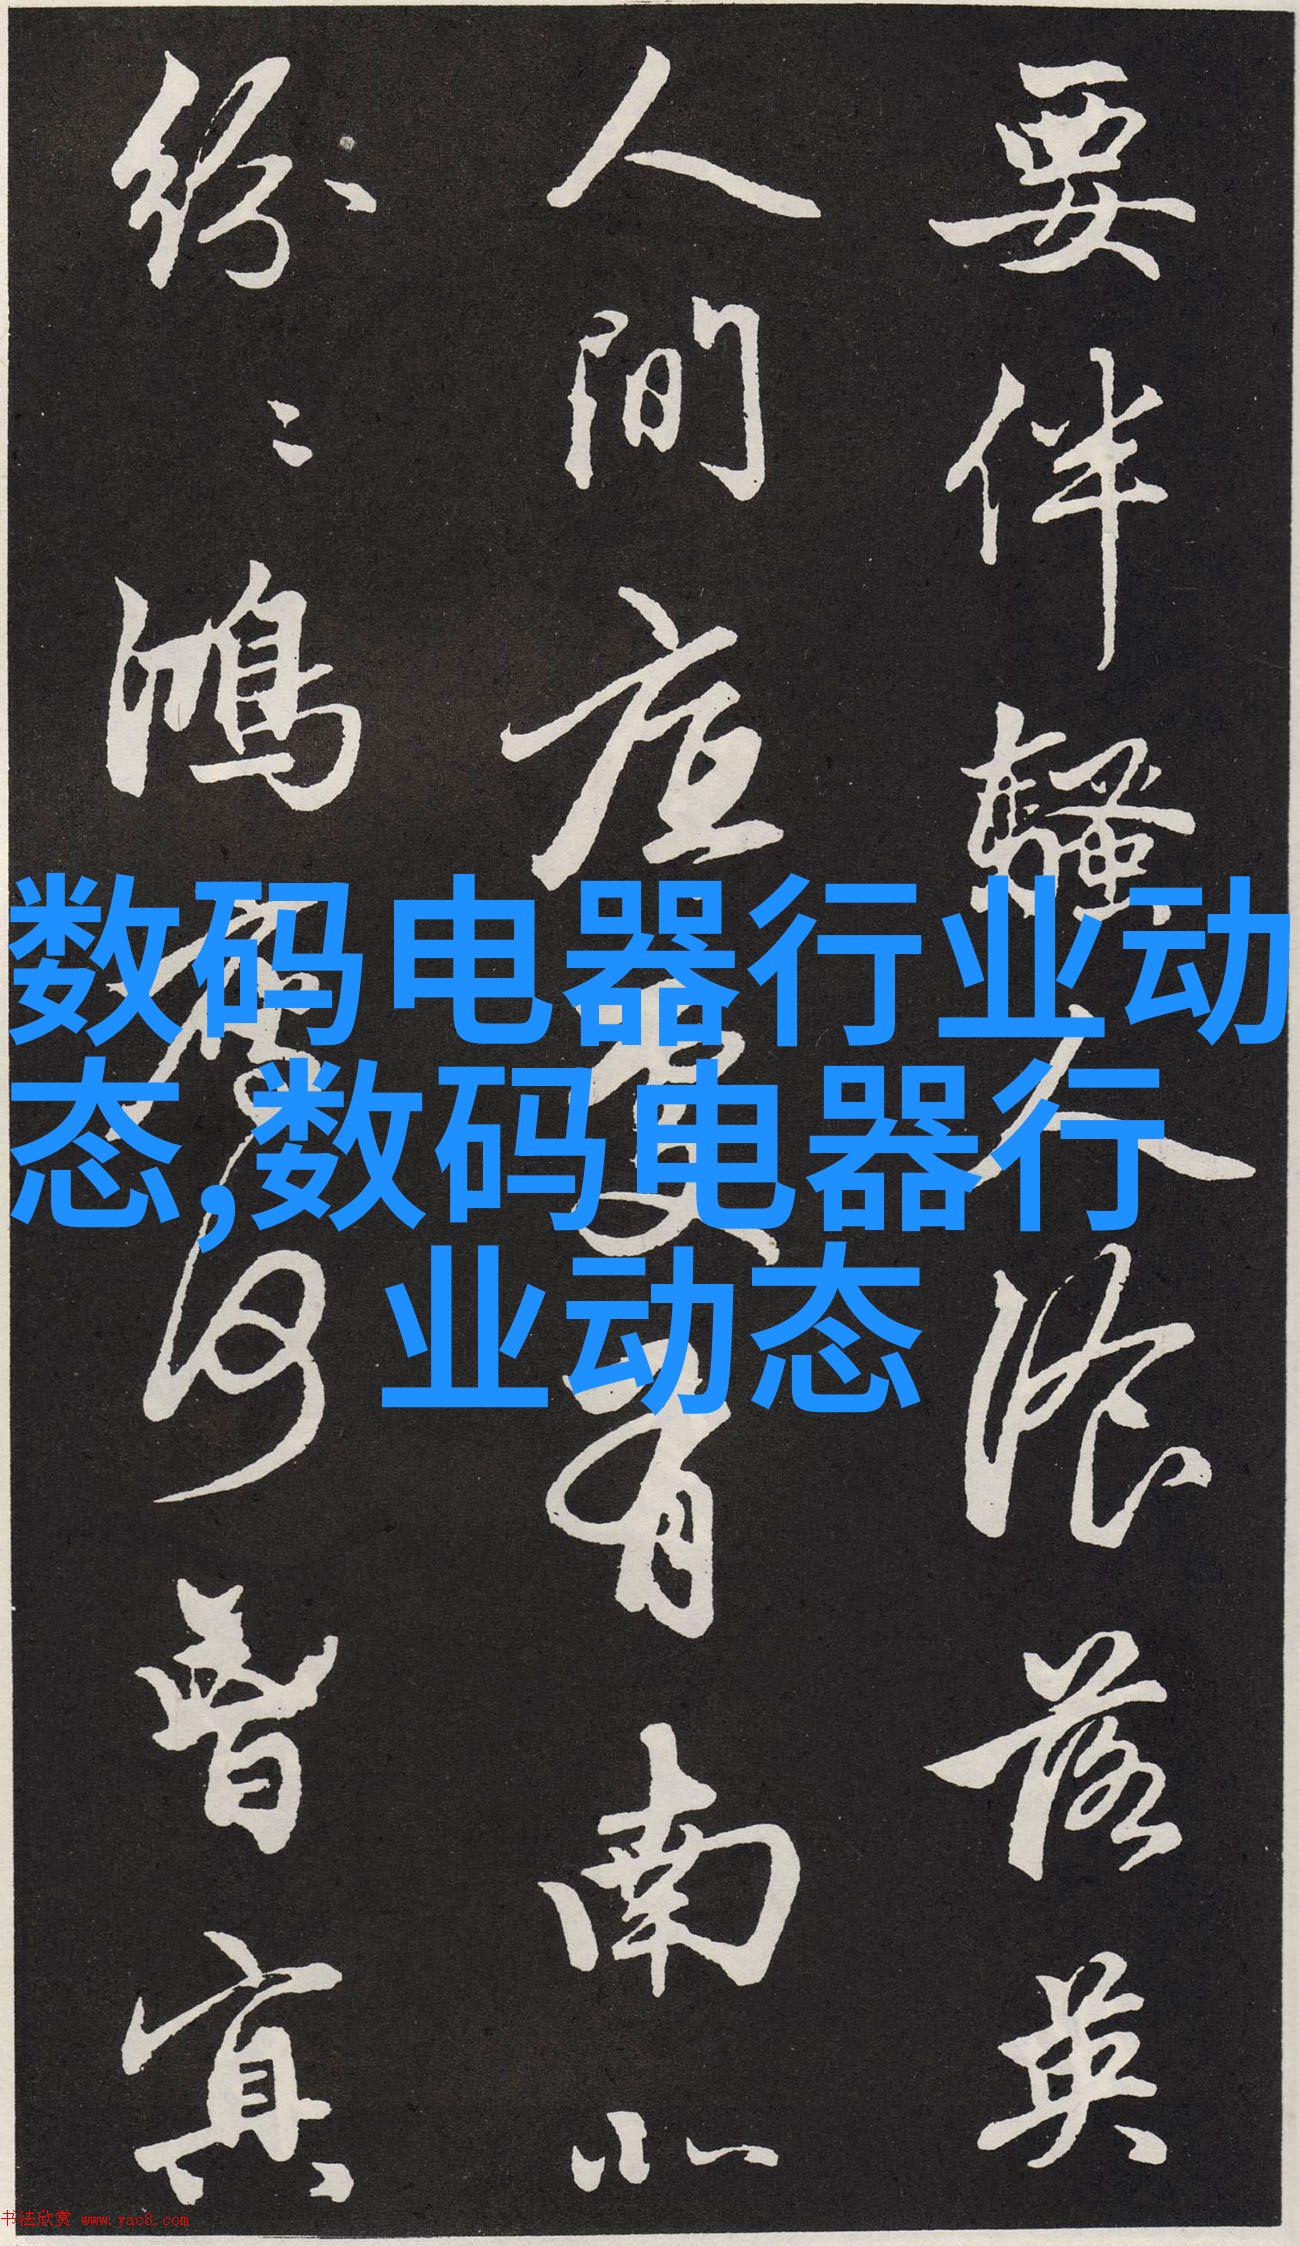 要伴騷人湌落英
人間底處有南北
紛〻鴻鴈何曾冥
数码电器行业动
态,数码电器行
业动态
书法欣赏 www.yac8.com